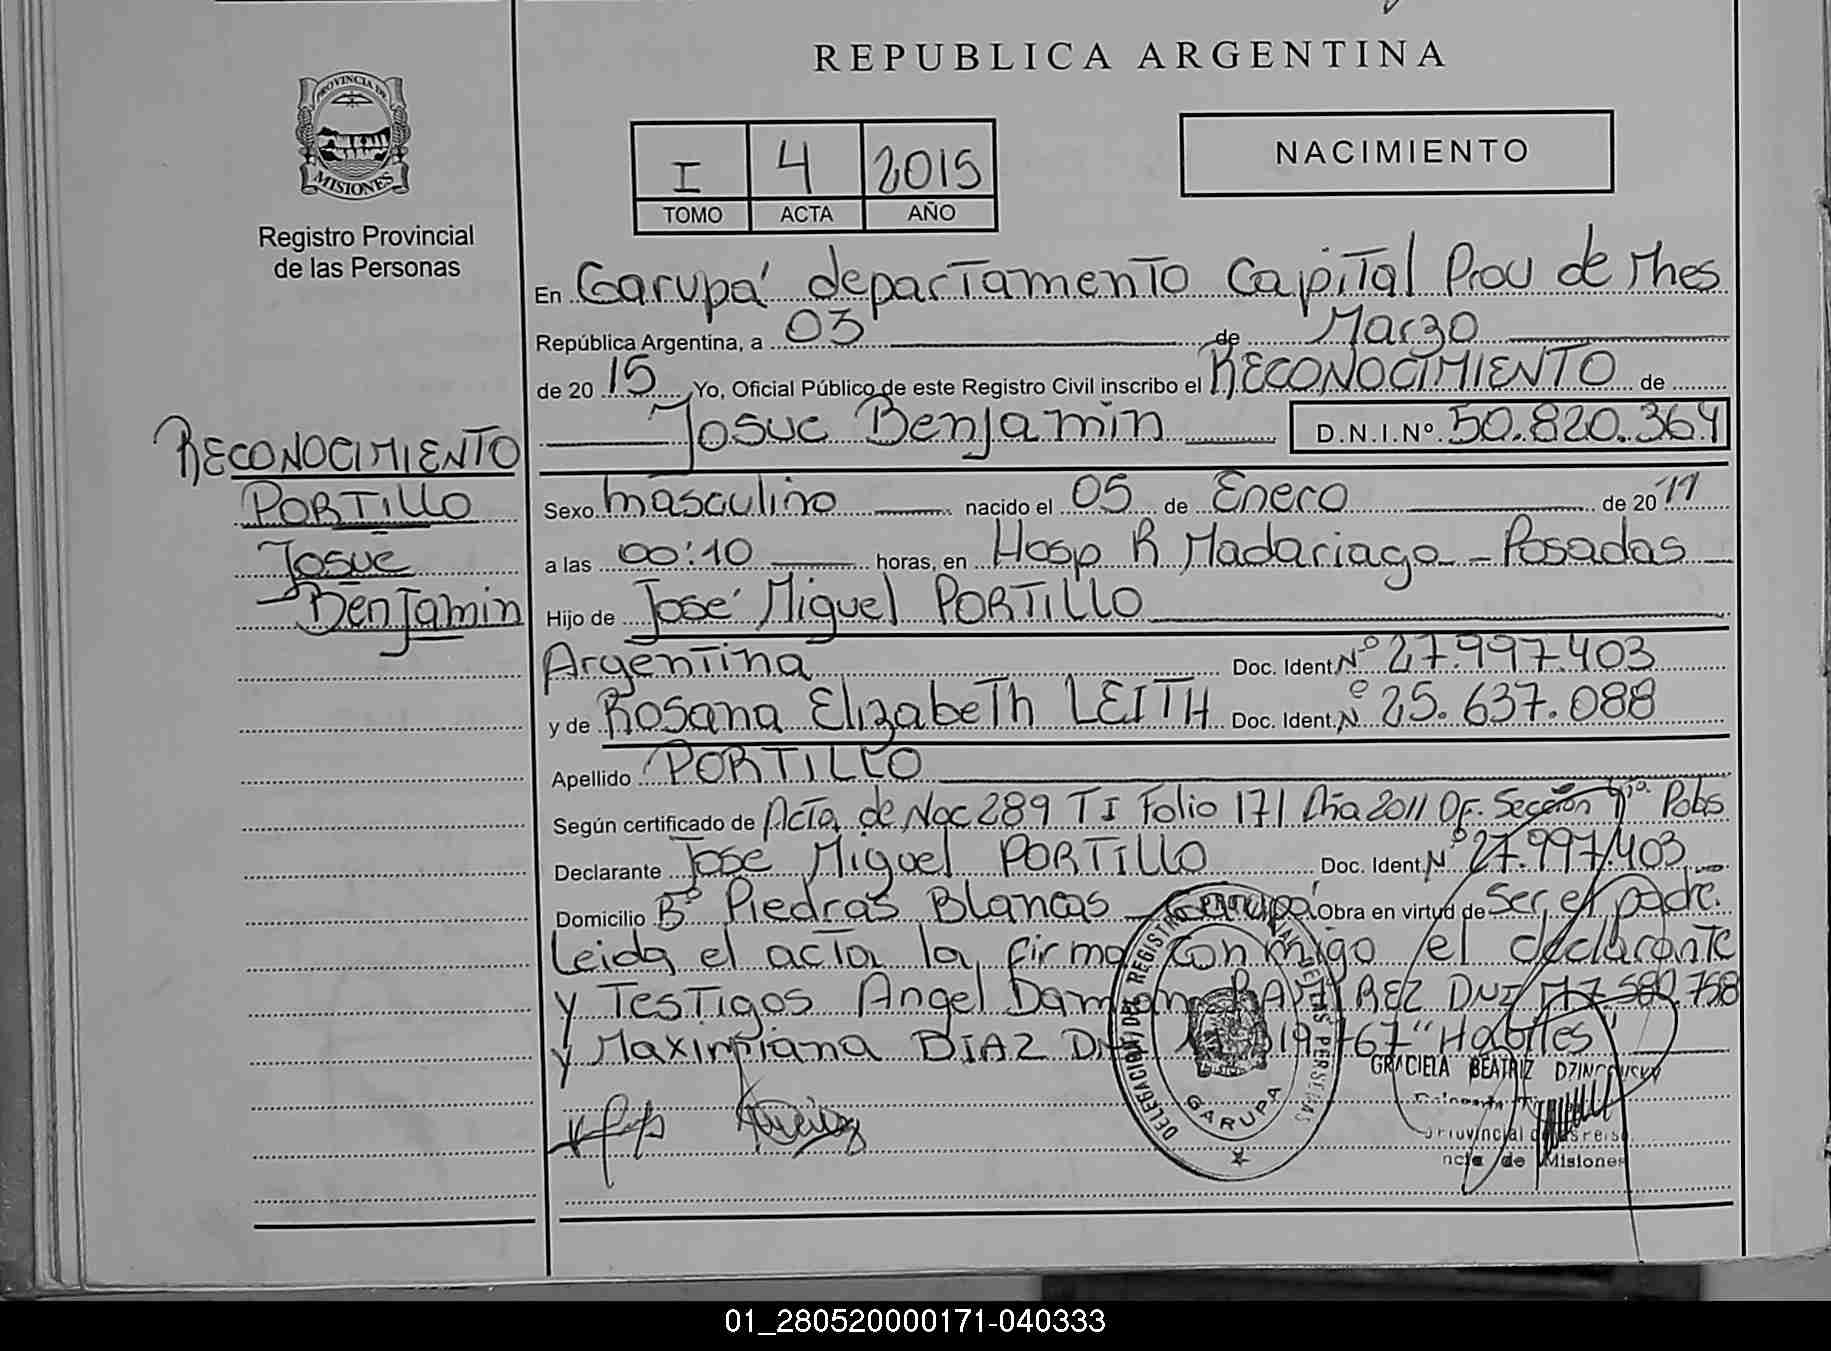 REPUBLICA ARGENTINA
PROVINCIA DE
MISIONES
Registro Provincial
de las Personas
I 4 2015
TOMO ACTA AÑO
NACIMIENTO
En Garupá departamento Capital Prov de Mnes
República Argentina, a 03 de Marzo
de 20 15 Yo, Oficial Público de este Registro Civil inscribo el RECONOCIMIENTO de
Josue Benjamin D.N.I.Nº 50.820.364
RECONOCIMIENTO
PORTILLO
Josue
Benjamin
Sexo masculino nacido el 05 de Enero de 20 11
a las 00:10 horas, en Hosp R Madariaga - Posadas
Hijo de José Miguel PORTILLO
Argentina Doc. Ident. Nº 27.997.403
y de Rosana Elizabeth LEITH Doc. Ident. Nº 25.637.088
Apellido PORTILLO
Según certificado de Acta de Nac 289 T I Folio 171 Año 2011 Of. Sección Pdas
Declarante José Miguel PORTILLO Doc. Ident. Nº 27.997.403
Domicilio Bº Piedras Blancas - Garupá Obra en virtud de ser el padre.
Leida el acta la firma conmigo el declarante
y Testigos Angel Damian RAMIREZ DNI 17.580.758
y Maximiana DIAZ 767 "Habiles"
DELEGACION DEL REGISTRO PROVINCIAL DE LAS PERSONAS
GARUPA
GRACIELA BEATRIZ
Provincial de
de Misiones
01_280520000171-040333